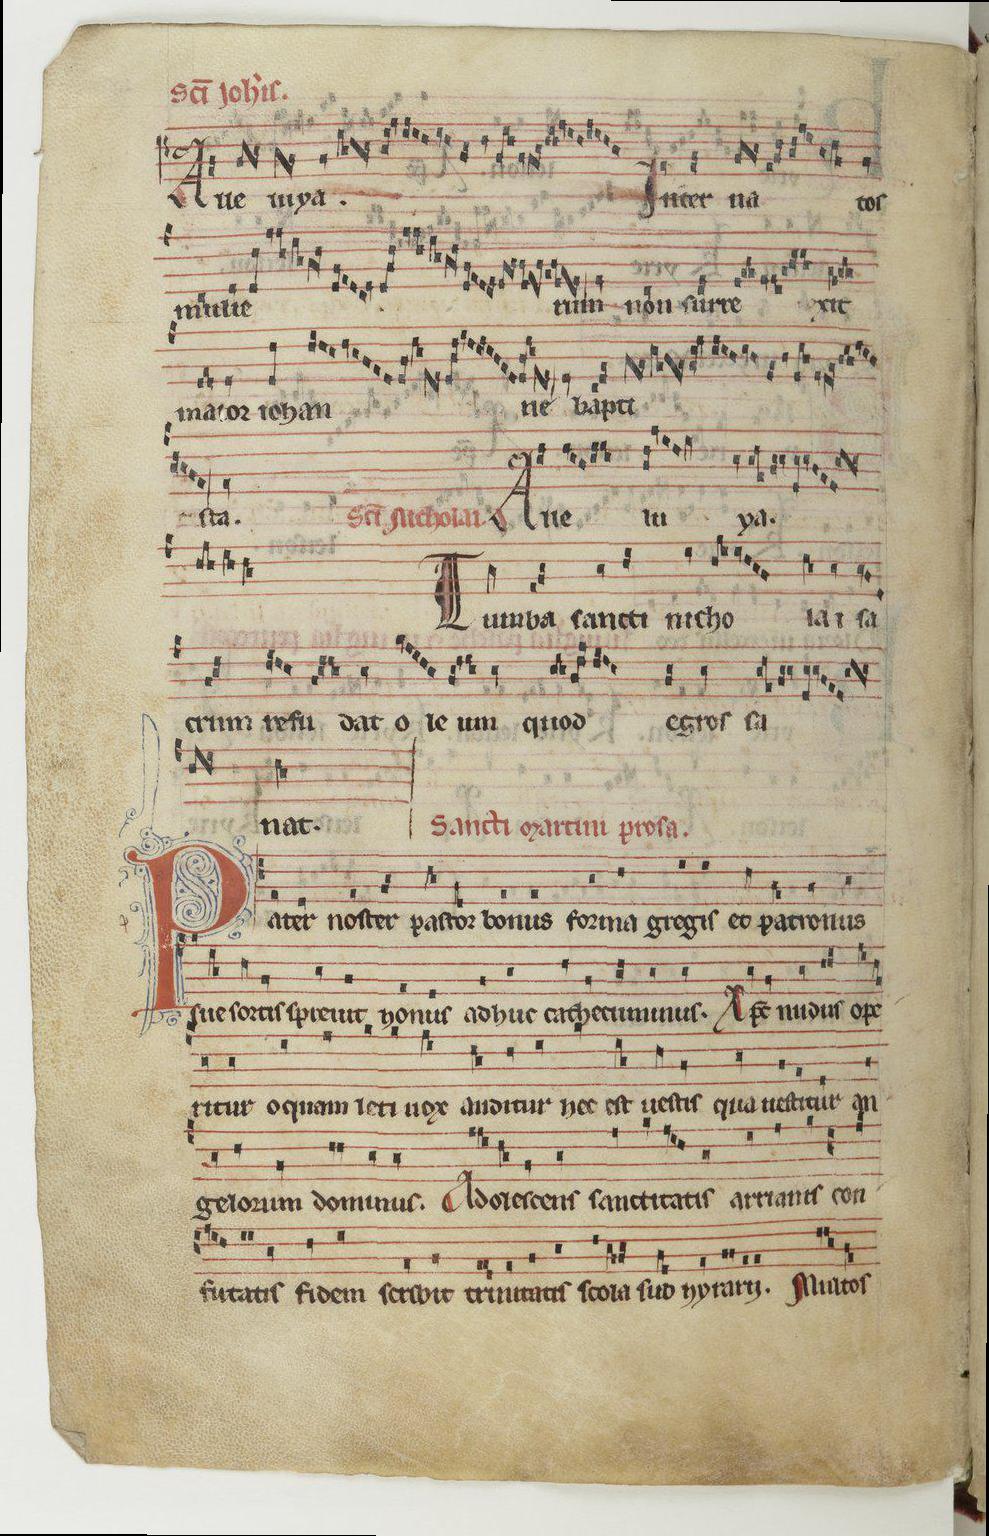 Scī Joħis.
Aue uiya. Inter na tos
mulie rum non surre xit
maior iohan ne bapti
sta. Scī Nicholai. Aue uı ya.
Tumba sancti nicho lai sa
crum resu dat o le um quod egros sa
nat. Sancti martini prosa.
Pater noster pastor bonus forma gregis et patronus
sue sortis spreuit honus adhuc cathecuminus. Apē nudus ope
ritur o quam leti uox auditur hec est uestis qua uestitur an
gelorum dominus. Adolescens sanctitatis arrianis con
futatis fidem scribit trinitatis scola sub hylarij. Multos